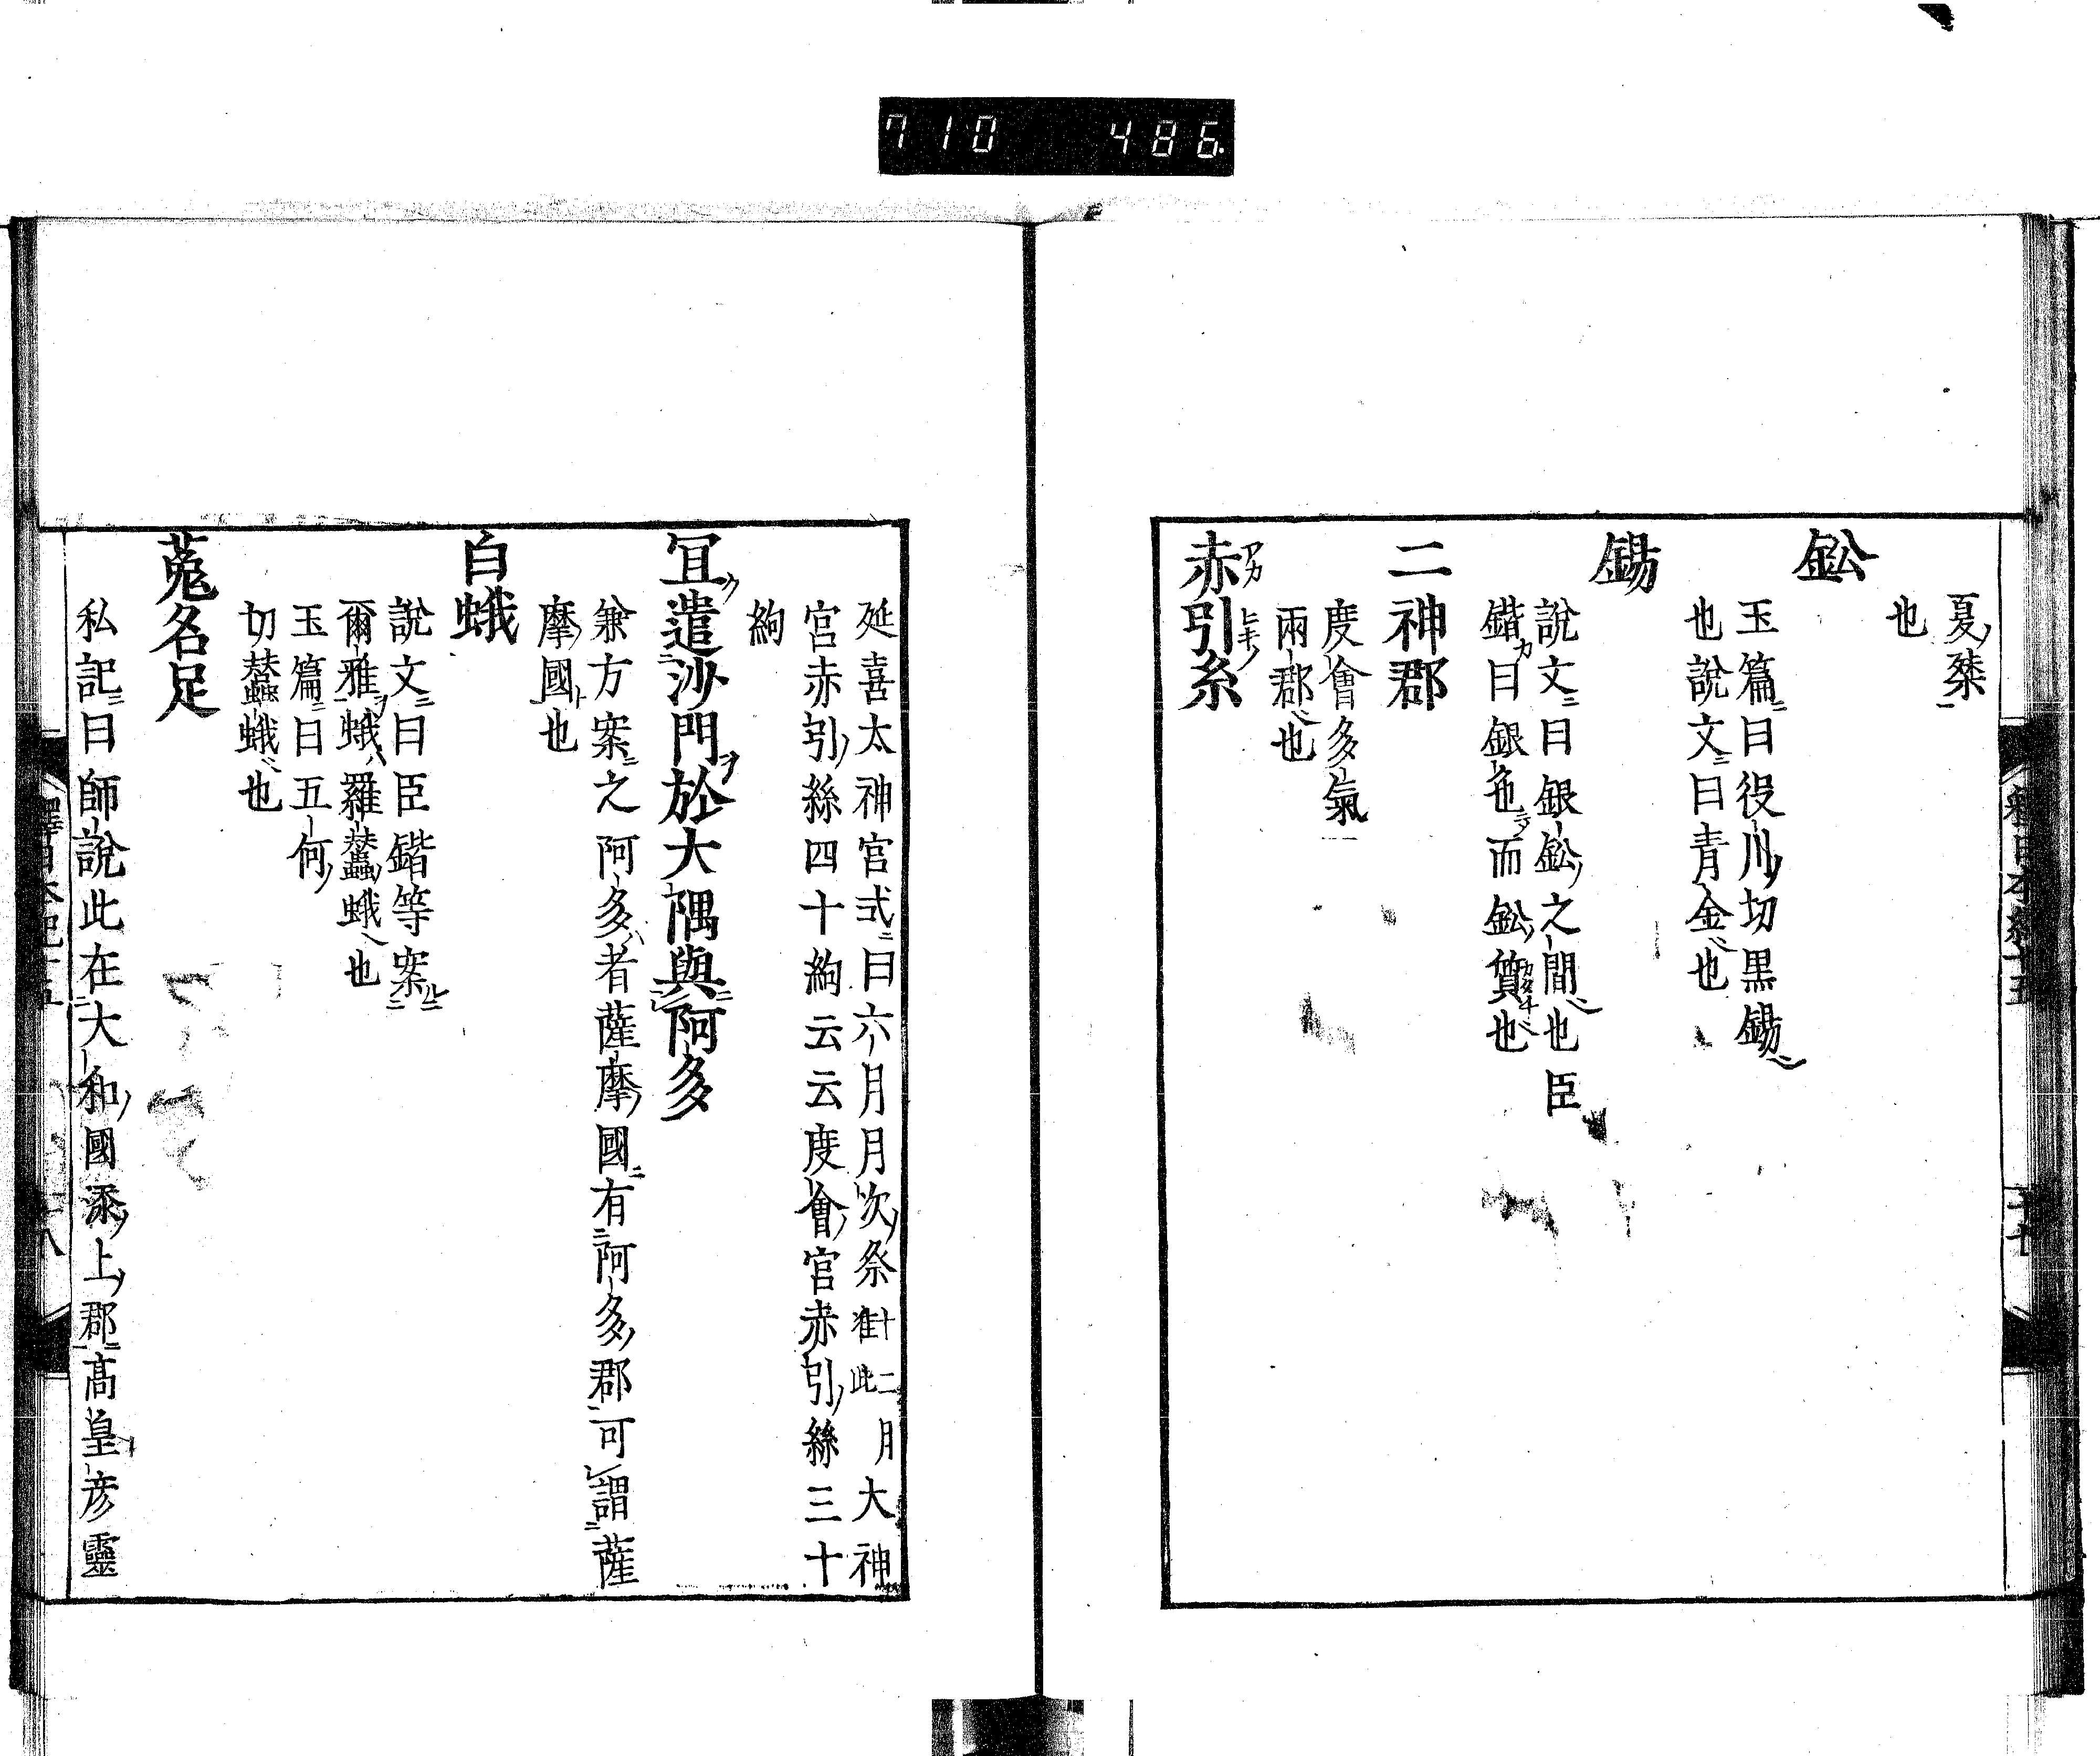 710 486
夏桀
也
鈆
玉篇曰役川切黒錫
也說文曰青金也
錫
說文曰銀鈆之間也臣
鍇曰銀色而鈆質也
二神郡
度會多氣
兩郡也
赤引糸
延喜太神宮式曰六月月次祭十二月准此大神
宮赤引絲四十絢云云度會宮赤引絲三十
絢
冝遣沙門於大隅與阿多
兼方案之阿多者薩摩國有阿多郡可謂薩
摩國也
白蛾
說文曰臣鍇等案
爾雅蛾羅蠶蛾也
玉篇曰五何
切蠶蛾也
菟名足
私記曰師說此在大和國添上郡高皇彦靈